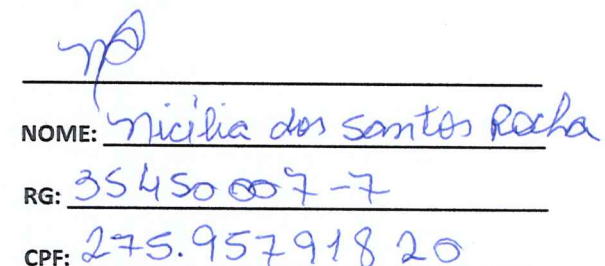 NOME: Nicília dos Santos Rocha
RG: 35450007-7
CPF: 275.95791820